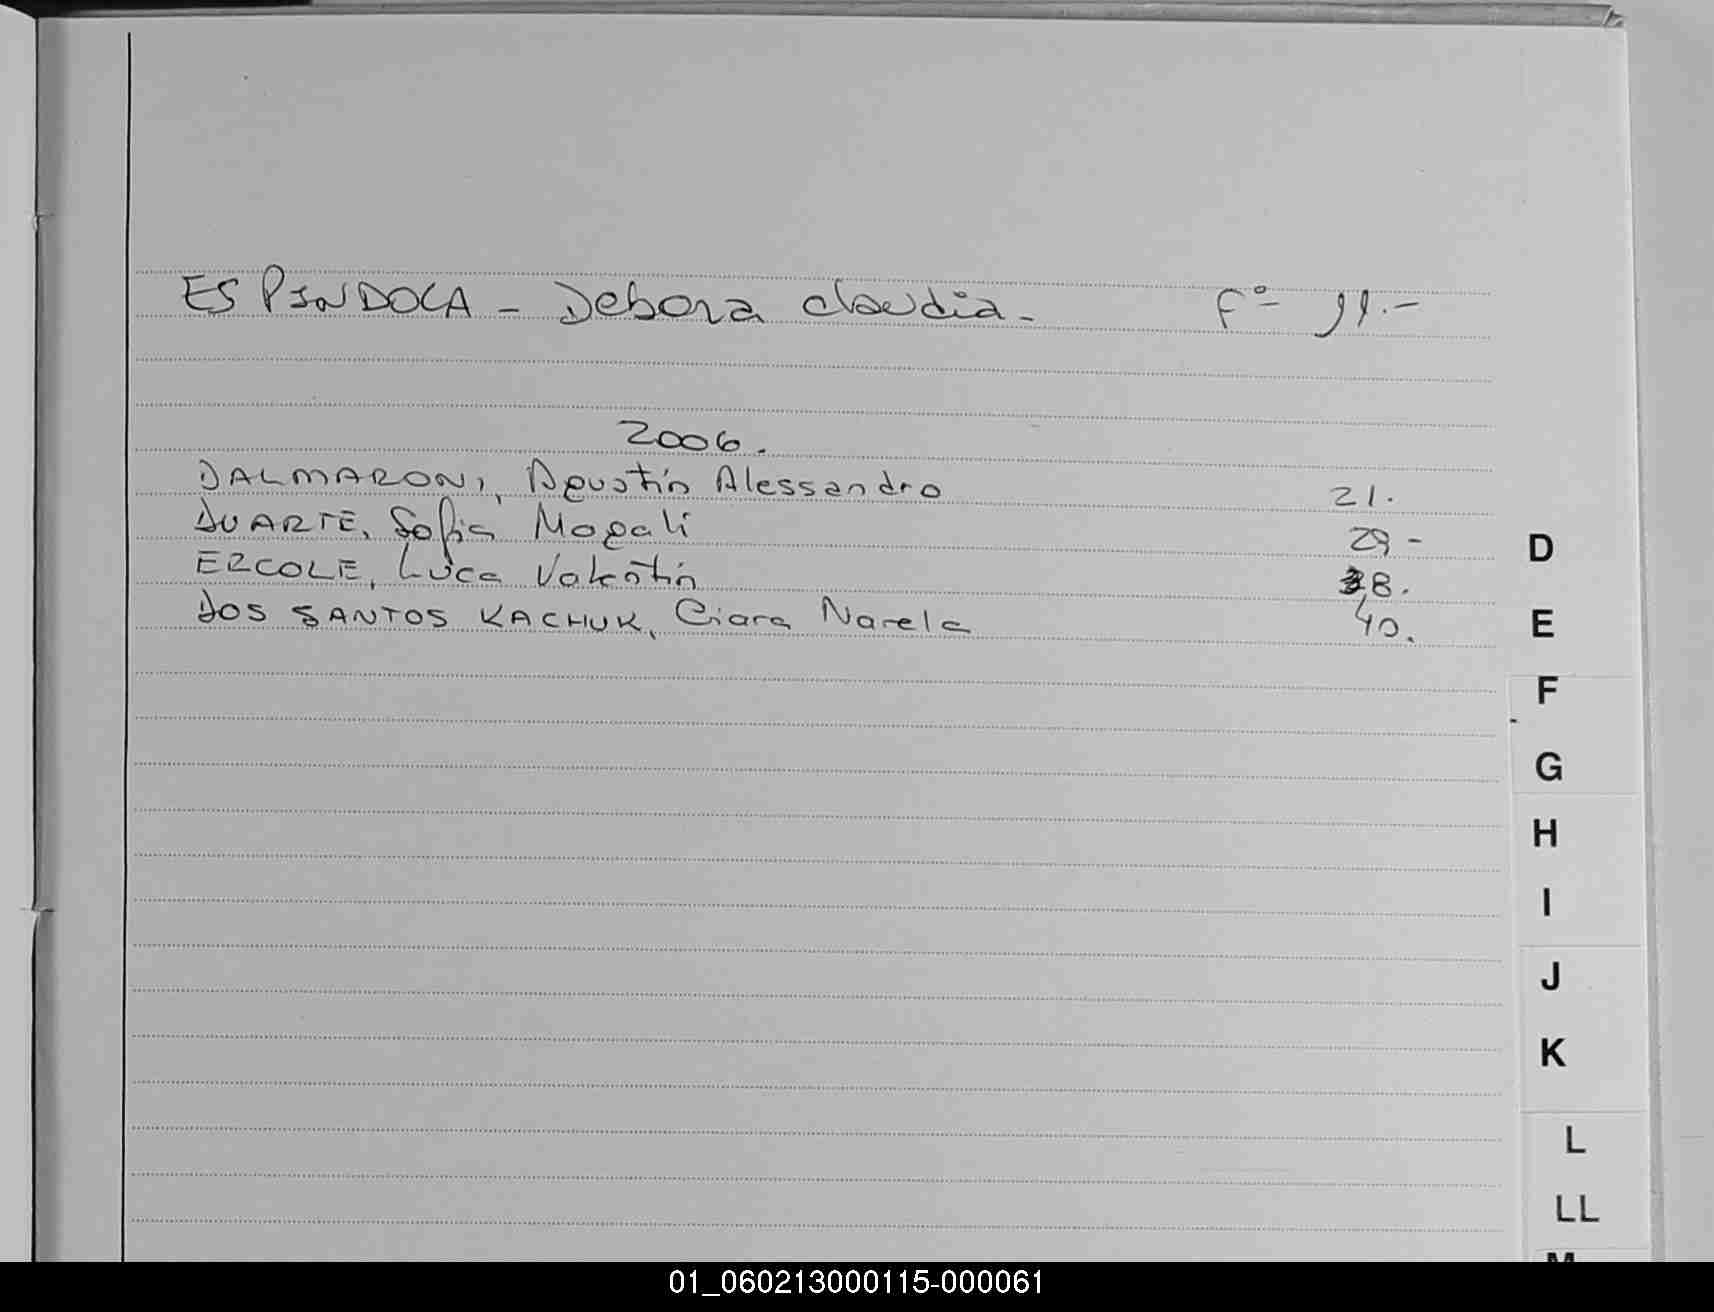 ESPINDOLA - Debora Claudia. Fº 99.-
2006.
DALMARONI, Agustín Alessandro 21.
DUARTE, Sofia Magali 29-
ERCOLE, Luca Valentín 38.
DOS SANTOS KACHUK, Ciara Narela 40.
D
E
F
G
H
I
J
K
L
LL
M
01_060213000115-000061